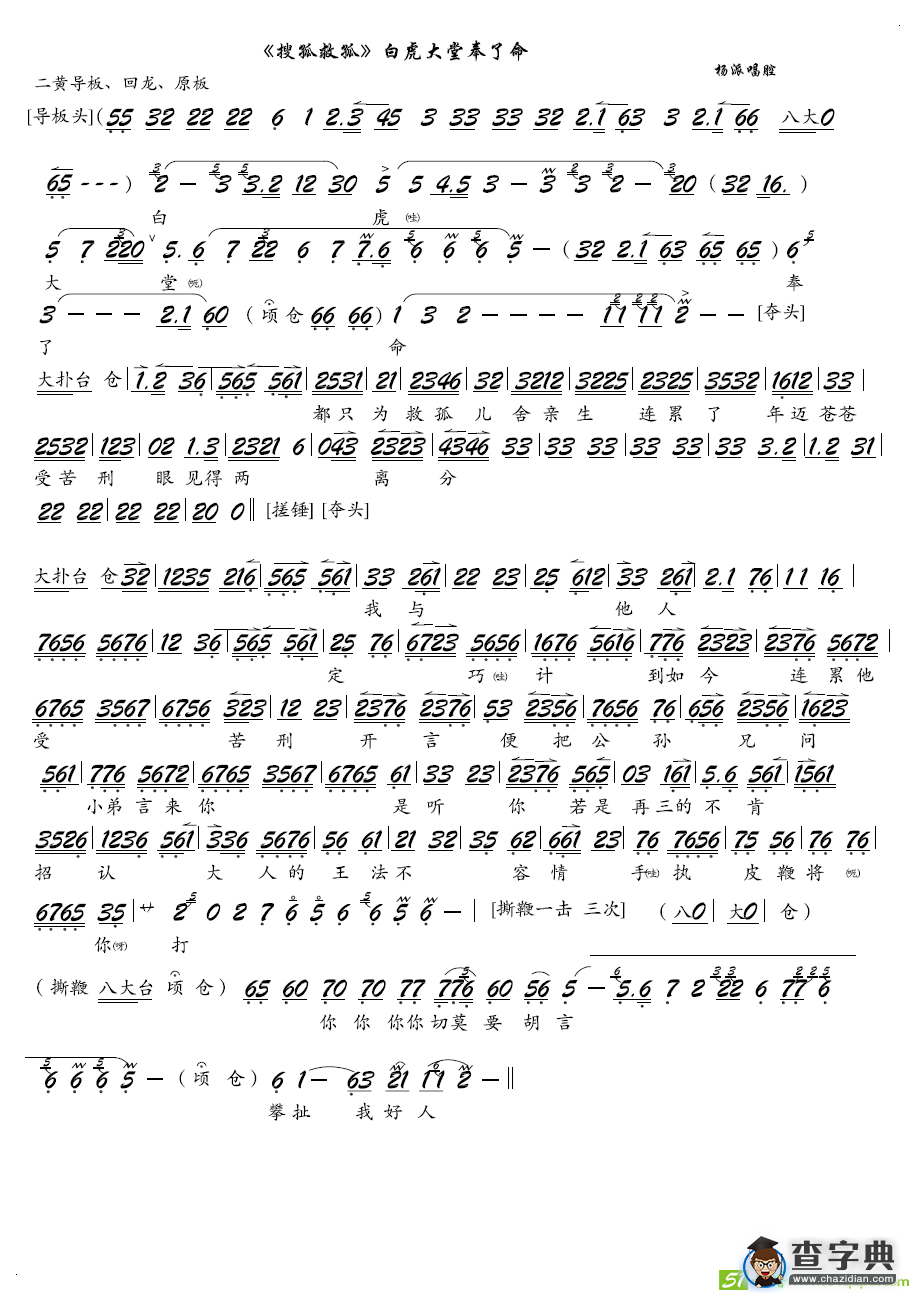 《搜孤救孤》白虎大堂奉了命
杨派唱腔
二黄导板、回龙、原板
[导板头](55 32 22 22 6 1 2.3 45 3 33 33 32 2.1 63 3 2.1 66 八大0
65 - - -) 2 - 3 3.2 12 30 5 5 4.5 3 - 3 3 2 - 20 (32 16.)
白 虎(哇)
5 7 220 5. 6 7 22 6 7 7.6 6 6 6 5 - (32 2.1 63 65 65) 6
大 堂(呃) 奉
3 - - - 2.1 60 (顷仓 66 66) 1 3 2 - - - - 11 11 2 - - [夺头]
了 命
大扑台 仓|1.2 36|565 561|2531|21|2346|32|3212|3225|2325|3532|1612|33|
都只为救孤儿舍亲生 连累了 年迈苍苍
2532|123|02 1.3|2321 6|043 2323|4346 33|33 33|33 33|33 3.2|1.2 31|
受苦刑 眼见得两 离 分
22 22|22 22|20 0‖ [搓锤] [夺头]
大扑台 仓 32|1235 216|565 561|33 261|22 23|25 612|33 261|2.1 76|11 16|
我与 他人
7656 5676|12 36|565 561|25 76|6723 5656|1676 5616|776 2323|2376 5672|
定 巧(哇)计 到如今 连累他
6765 3567|6756 323|12 23|2376 2376|53 2356|7656 76|656 2356|1623
受 苦刑 开言 便把公孙 兄问
561|776 5672|6765 3567|6765 61|33 23|2376 565|03 161|5.6 561|1561
小弟言来你 是听 你 若是再三的不肯
3526|1236 561|336 5676|56 61|21 32|35 62|661 23|76 7656|75 56|76 76|
招认 大人的王法不 容情 手(哇)执 皮鞭将(呃)
6765 35|サ 2 0 2 7 6 5 6 6 5 6 -|[撕鞭一击 三次] (八0|大0|仓)
你(呀) 打
(撕鞭 八大台 顷仓) 65 60 70 70 77 776 60 56 5 - 5.6 7 2 22 6 77 6
你你你你切莫要胡言
6 6 6 5 - (顷仓) 6 1 - 63 21 11 2 - ‖
攀扯 我好人
查字典
www.chazidian.com